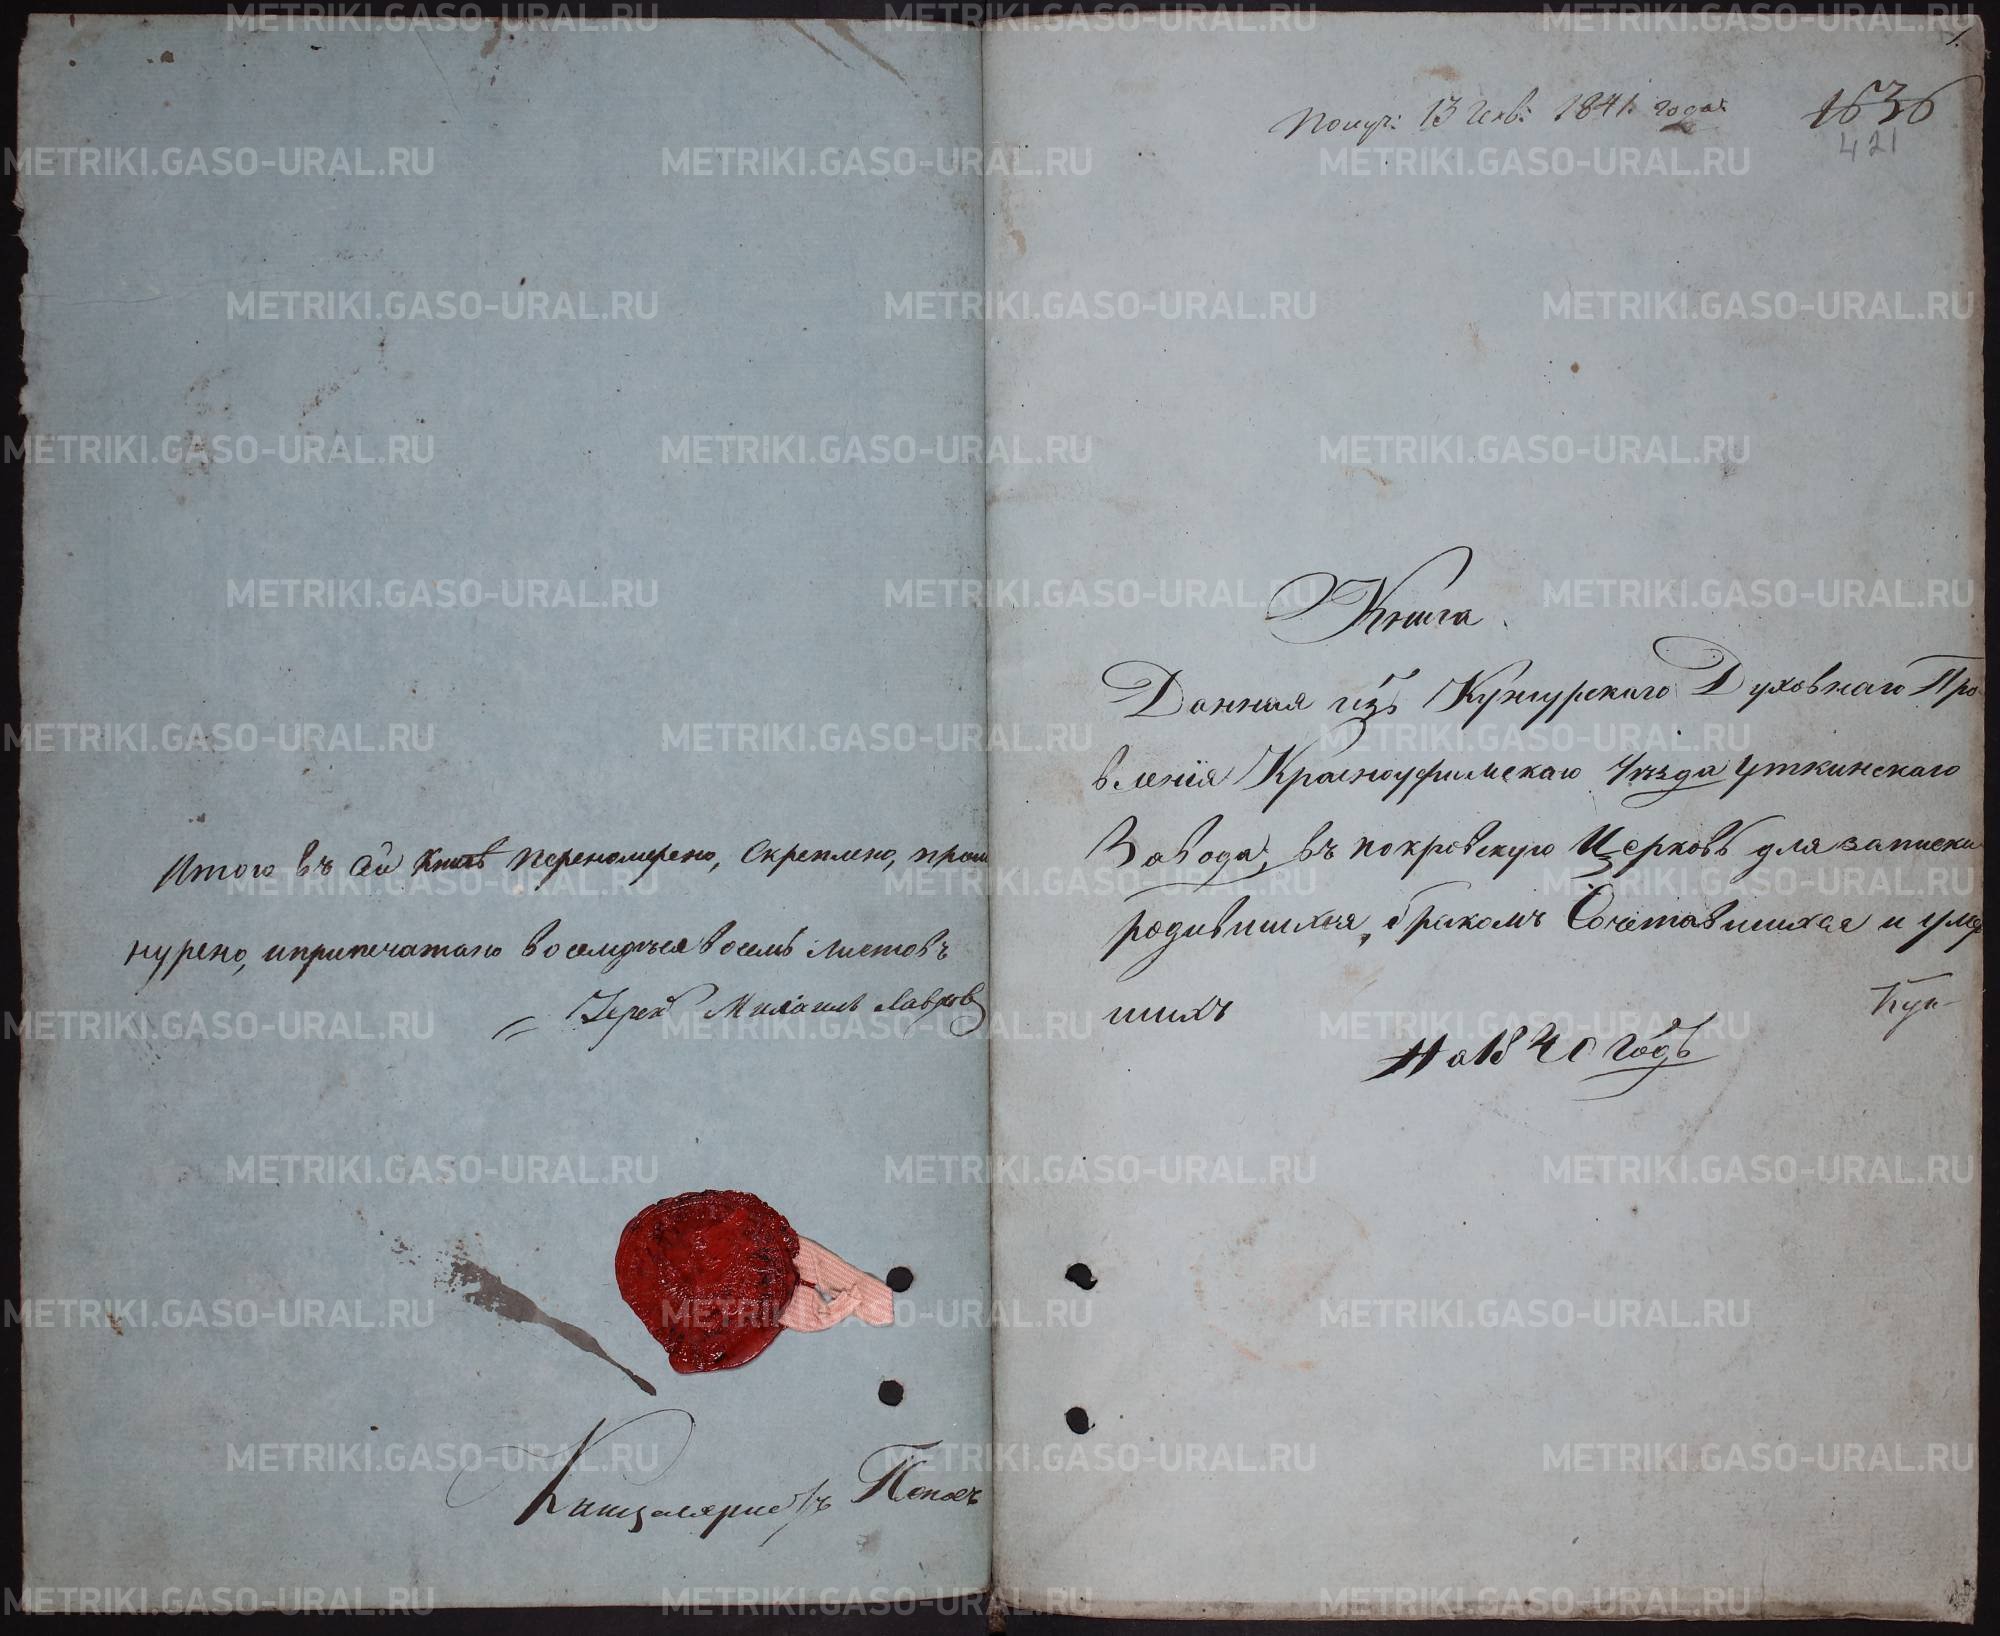 Итого въ сей Книгѣ перенумерено, Скреплено, прош
нурено, иприпечатано восемдесѧ восемь листовъ
Іерей Михаилъ Лавров
Канцеляристъ Попов
1.
Получ: 13 Генв: 1841 года
1636
421
Книга
Данная изъ Кунгурскаго Духовнаго Пра
вленія Красноуфимскаго Уѣзда Уткинскаго
Завода, въ покровскую Церковь для записки
родившихся, бракомъ Сочетавшихся и умер
шихъ
Кун-
На 1840 годъ
METRIKI.GASO-URAL.RU